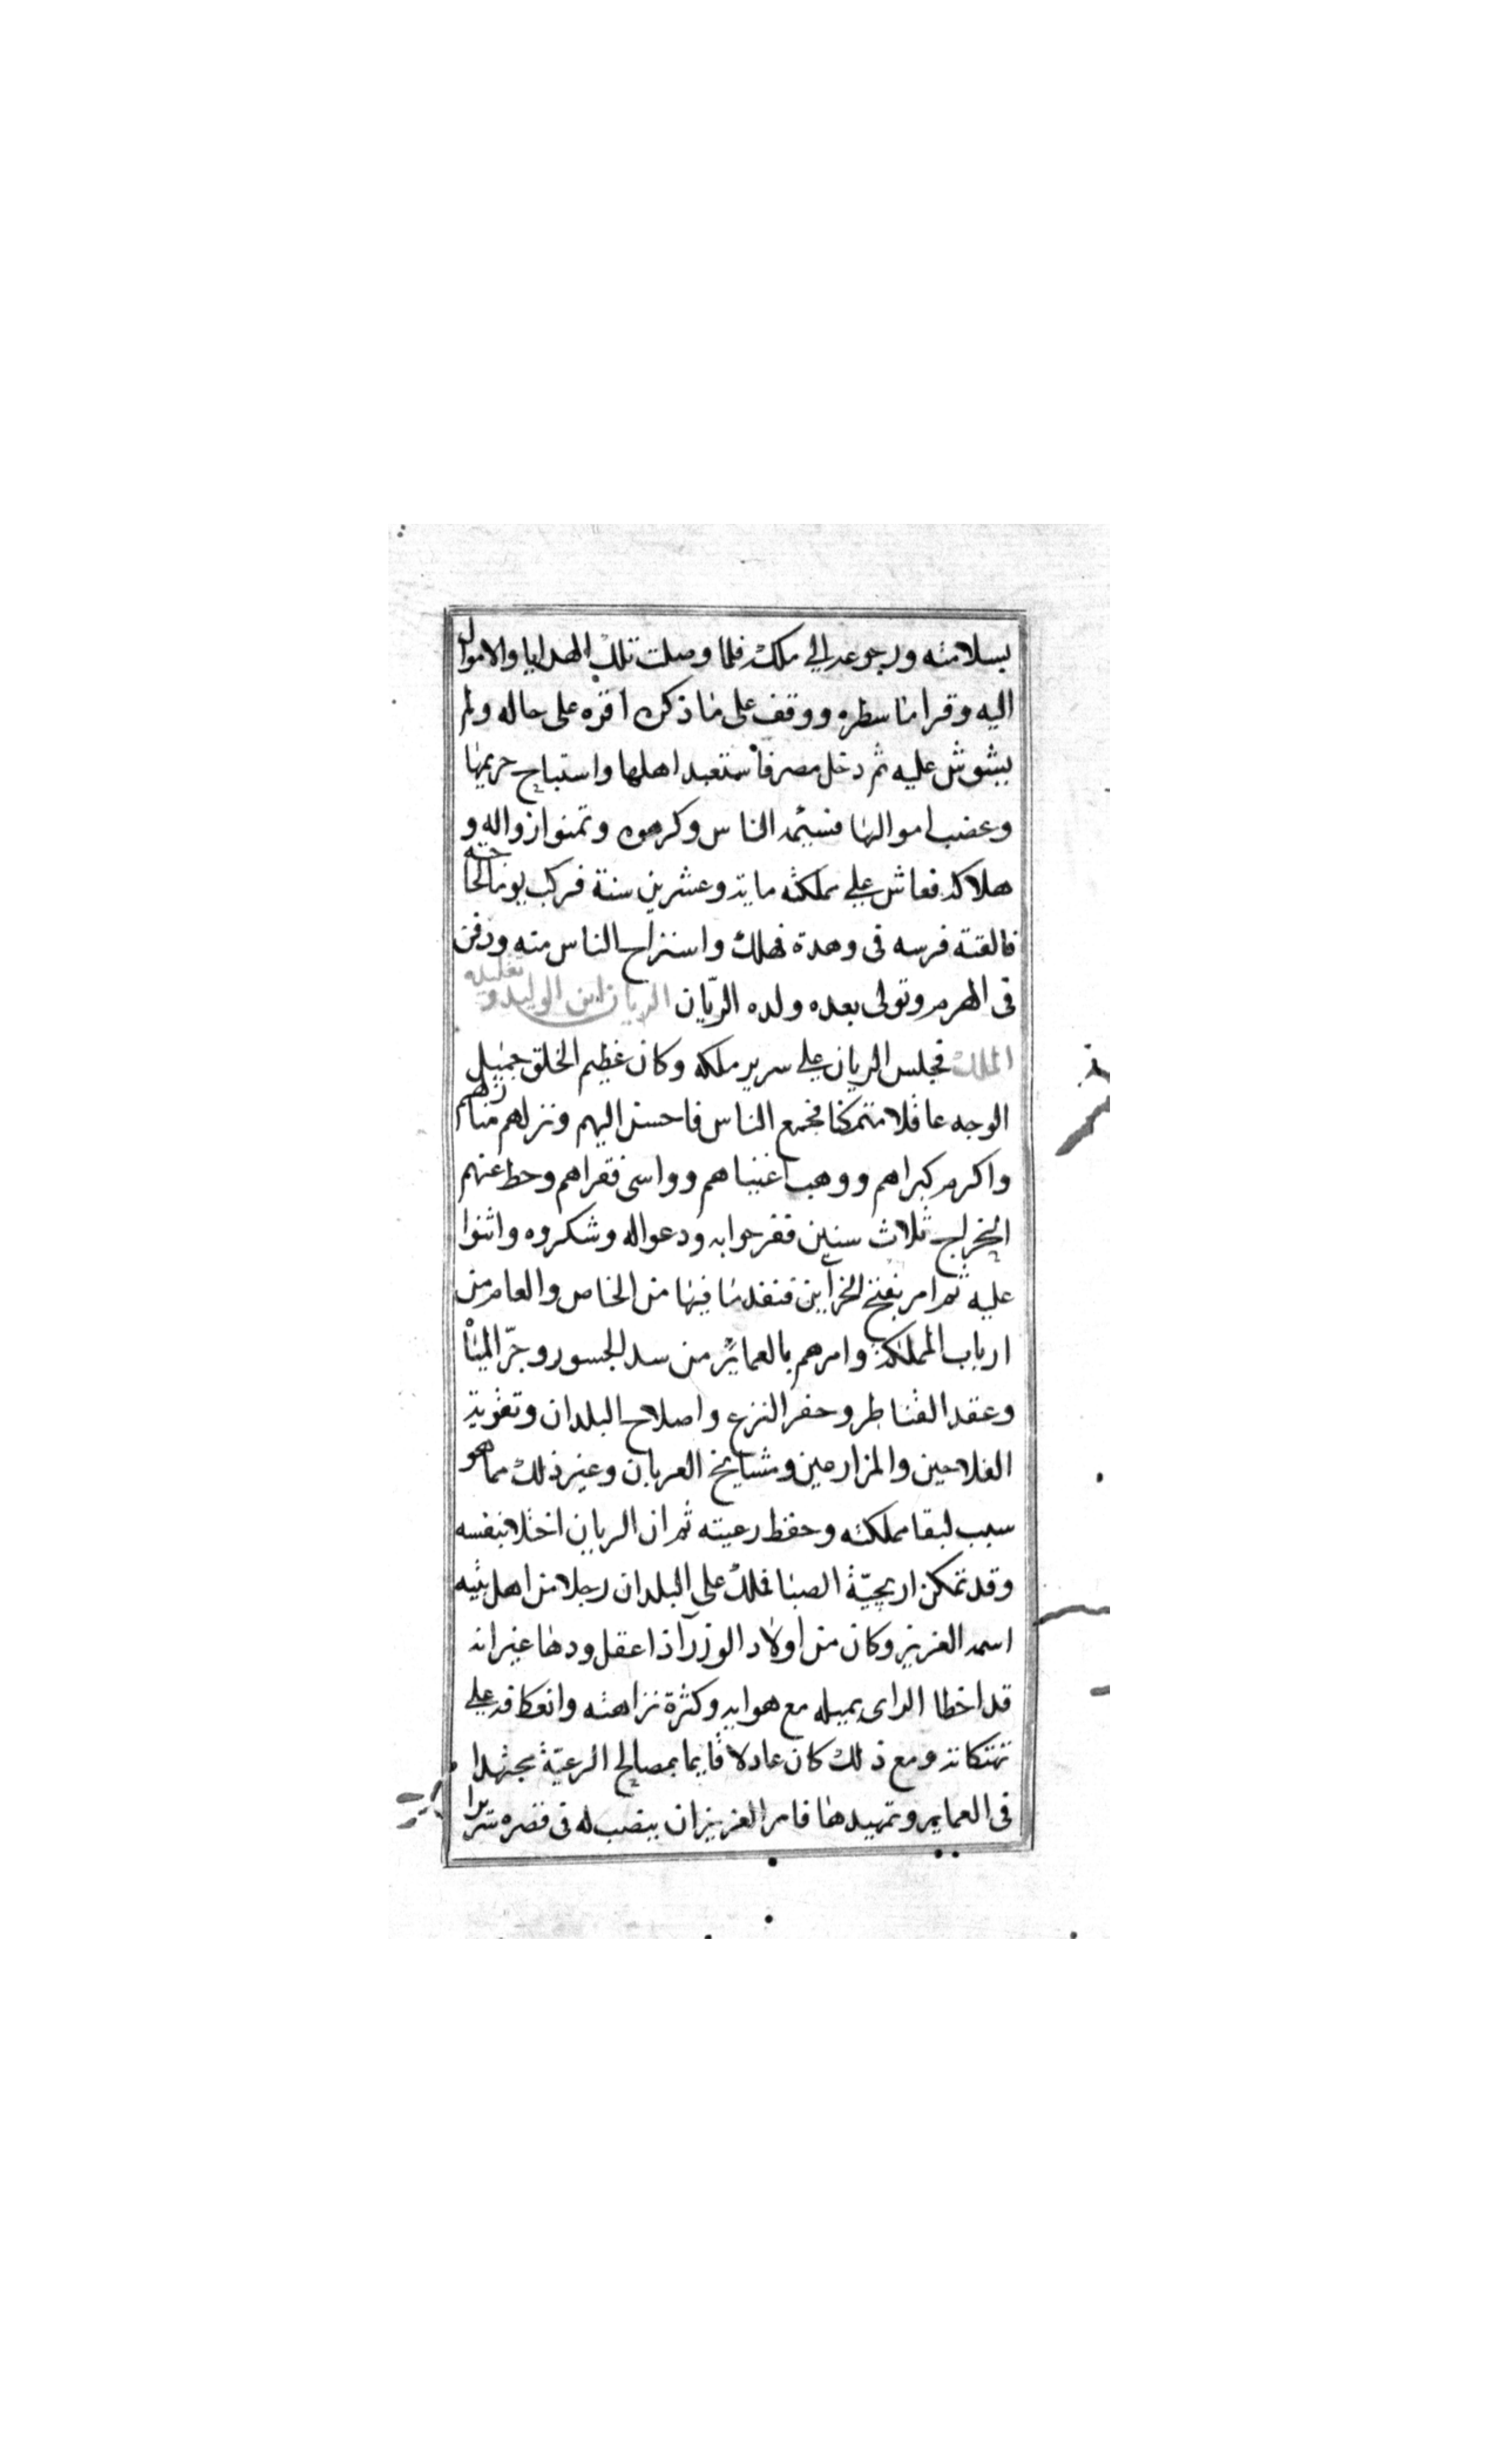 بسلامته ورجوعه الي ملكه فلما وصلت تلك الهدايا والاموال
اليه وقرا ما سطره ووقف على ما ذكره اقره على حاله ولم
يشوش عليه ثم دخل مصر فاستعبد اهلها واستباح حريمها
وغضب اموالها فسئمه الناس وكرهوه وتمنوا زواله و
هلاكه فعاش علي مملكته ماية وعشرين سنة فركب يوما لحاجته
فالقته فرسه فى وهدة فهلك واستراح الناس منه ودفن
فى الهرم وتولى بعده ولده الريّان الريان ابن الوليد وتقليده
الملك فجلس الريان علي سرير ملكه وكان عظيم الخلق جميل
الوجه عاقلا متمكنا فجمع الناس فاحسن اليهم ونزلهم منازلهم
واكرم كبراهم ووهب اغنياهم وواسى فقراهم وحط عنهم
الخراج ثلاث سنين ففرحوا به ودعوا له وشكروه واثنوا
عليه ثم امر بفتح الخزآين فنفد ما فيها من الخاص والعام من
ارباب المملكة وامرهم بالعماير من سد الجسور وجرّ المياه
وعقد القناطر وحفر الترع واصلاح البلدان وتقوية
الفلاحين والمزارعين ومشايخ العربان وغير ذلك مما هو
سبب لبقا مملكته وحفظ رعيته ثم ان الريان اختلا بنفسه
وقد تمكن اريحيّة الصبا فملك على البلدان رجلا من اهل بيته
اسمه العزيز وكان من اولاد الوزرآ ذا عقل ودها غير انه
قد اخطا الراى بميله مع هوايه وكثرة نزاهته وانعكافه علي
تهتكاته ومع ذلك كان عادلا قايما بمصالح الرعيّة مجتهدا
فى العماير وتمهيدها فامر العزيز ان ينصب له فى قصره سريرا